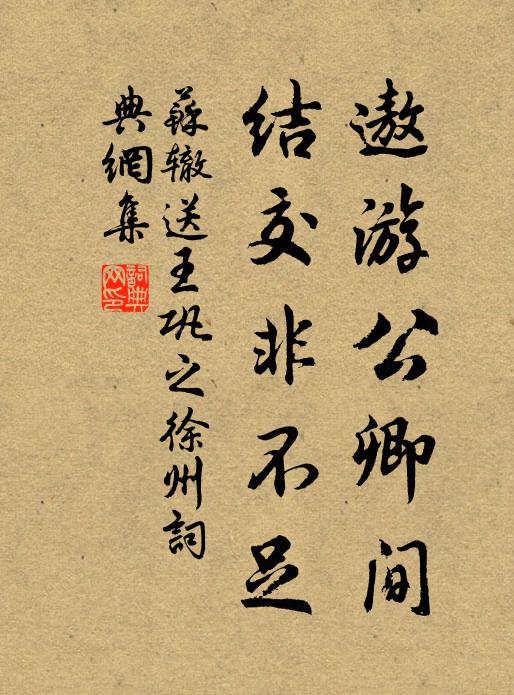 遨游公卿间
结交非不足
蘇辙送王巩之徐州詞
典網集
詞典网印